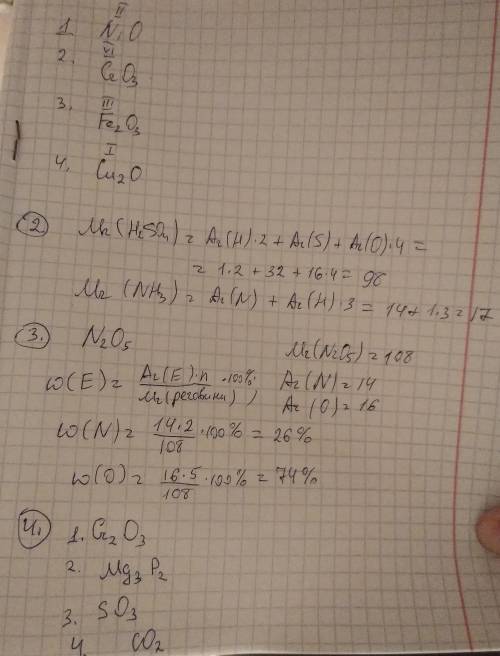 II
1 NiO
VI
2. CrO3
III
3. Fe2O3
I
4. Cu2O
2 Mr(H2SO4) = Ar(H)·2 + Ar(S) + Ar(O)·4 =
= 1·2 + 32 + 16·4 = 98
Mr (NH3) = Ar(N) + Ar(H)·3 = 14 + 1·3 = 17
3. N2O5
Mr(N2O5) = 108
ω(E) = Ar(E)·n / Mr(реговини) ·100%;
Ar(N) = 14
Ar(O) = 16
ω(N) = 14·2 / 108 ·100% = 26%
ω(O) = 16·5 / 108 ·100% = 74%
4.
1. Cr2O3
2. Mg3P2
3. SO3
4. CO2